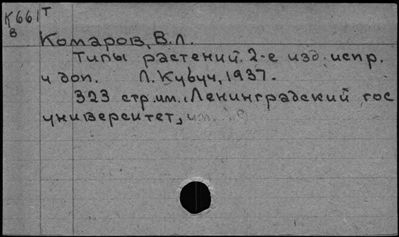 К661т
в
Комаров, В.Л.
Типы растений. 2-е изд. испр.
и доп. Л. Кубуч, 1937.
323 стр. им. Ленинградский гос
университет,